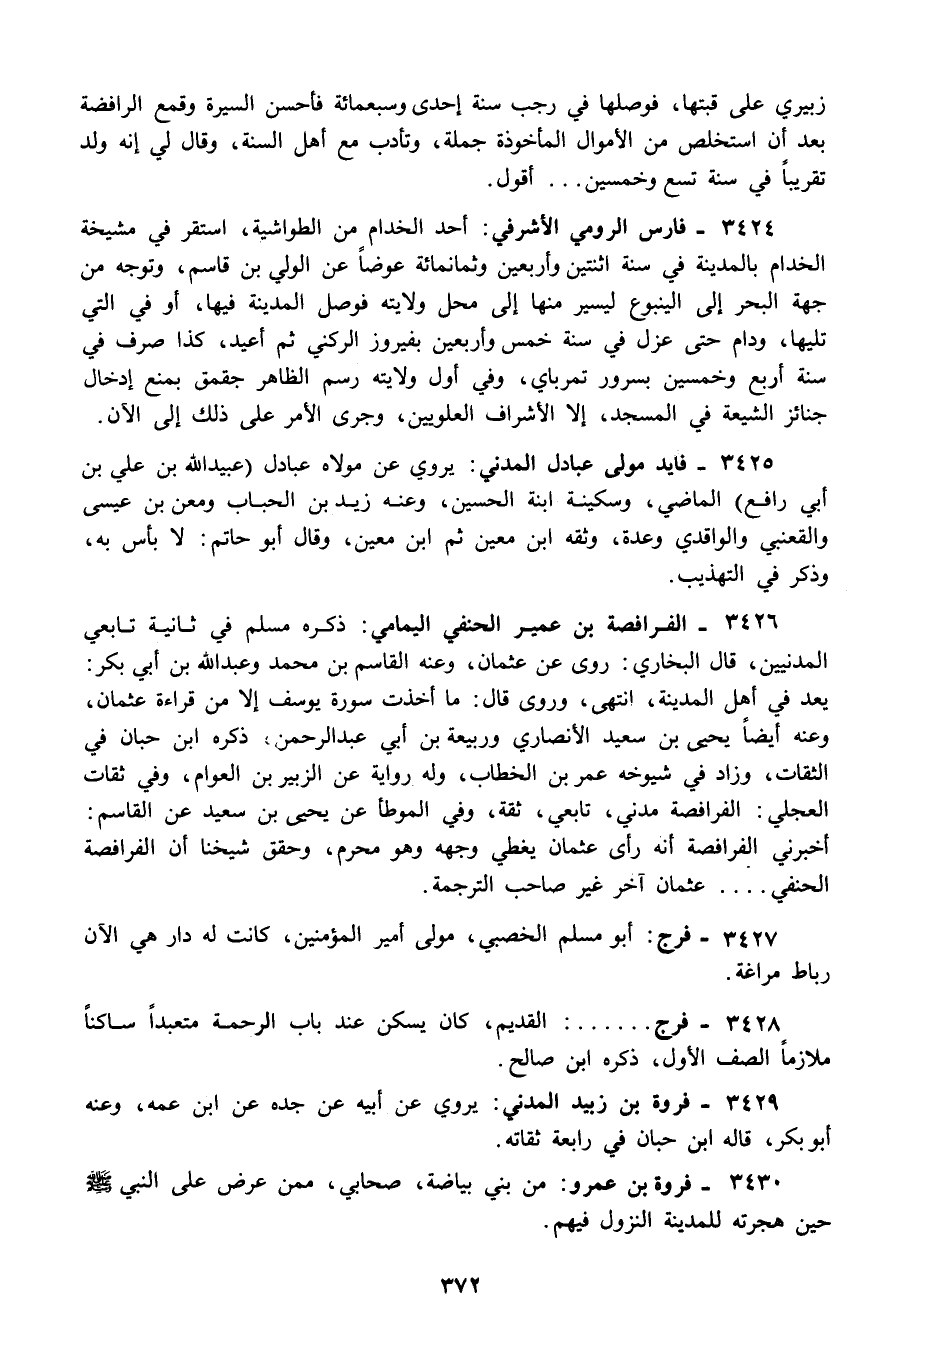 زبيري على قبتها، فوصلها في رجب سنة إحدى وسبعمائة فأحسن السيرة وقمع الرافضة
بعد أن استخلص من الأموال المأخوذة جملة، وتأدب مع أهل السنة، وقال لي إنه ولد
تقريباً في سنة تسع وخمسين... أقول.
٣٤٢٤ - فارس الرومي الأشرفي: أحد الخدام من الطواشية، استقر في مشيخة
الخدام بالمدينة في سنة اثنتين وأربعين وثمانمائة عوضاً عن الولي بن قاسم، وتوجه من
جهة البحر إلى الينبوع ليسير منها إلى محل ولايته فوصل المدينة فيها، أو في التي
تليها، ودام حتى عزل في سنة خمس وأربعين بفيروز الركني ثم أعيد، كذا صرف في
سنة أربع وخمسين بسرور تمرباي، وفي أول ولايته رسم الظاهر جقمق بمنع إدخال
جنائز الشيعة في المسجد، إلا الأشراف العلويين، وجرى الأمر على ذلك إلى الآن.
٣٤٢٥ - فايد مولى عبادل المدني: يروي عن مولاه عبادل (عبيدالله بن علي بن
أبي رافع) الماضي، وسكينة ابنة الحسين، وعنه زيد بن الحباب ومعن بن عيسى
والقعنبي والواقدي وعدة، وثقه ابن معين ثم ابن معين، وقال أبو حاتم: لا بأس به،
وذكر في التهذيب.
٣٤٢٦ - الفرافصة بن عمير الحنفي اليمامي: ذكره مسلم في ثانية تابعي
المدنيين، قال البخاري: روى عن عثمان، وعنه القاسم بن محمد وعبدالله بن أبي بكر:
يعد في أهل المدينة، انتهى، وروى قال: ما أخذت سورة يوسف إلا من قراءة عثمان،
وعنه أيضاً يحيى بن سعيد الأنصاري وربيعة بن أبي عبدالرحمن؛ ذكره ابن حبان في
الثقات، وزاد في شيوخه عمر بن الخطاب، وله رواية عن الزبير بن العوام، وفي ثقات
العجلي: الفرافصة مدني، تابعي، ثقة، وفي الموطأ عن يحيى بن سعيد عن القاسم:
أخبرني الفرافصة أنه رأى عثمان يغطي وجهه وهو محرم، وحقق شيخنا أن الفرافصة
الحنفي.... عثمان آخر غير صاحب الترجمة.
٣٤٢٧ - فرج: أبو مسلم الخصبي، مولى أمير المؤمنين، كانت له دار هي الآن
رباط مراغة.
٣٤٢٨ - فرج.......: القديم، كان يسكن عند باب الرحمة متعبداً ساكناً
ملازماً الصف الأول، ذكره ابن صالح.
٣٤٢٩ - فروة بن زبيد المدني: يروي عن أبيه عن جده عن ابن عمه، وعنه
أبو بكر، قاله ابن حبان في رابعة ثقاته.
٣٤٣٠ - فروة بن عمرو: من بني بياضة، صحابي، ممن عرض على النبي ﷺ
حين هجرته للمدينة النزول فيهم.
٣٧٢